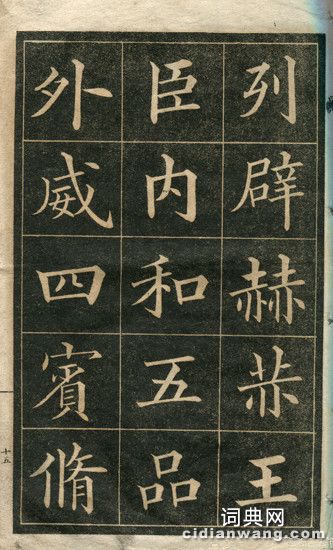 列辟赫王
臣内和五品
外威四賓脩
十五
词典网
cidianwang.com